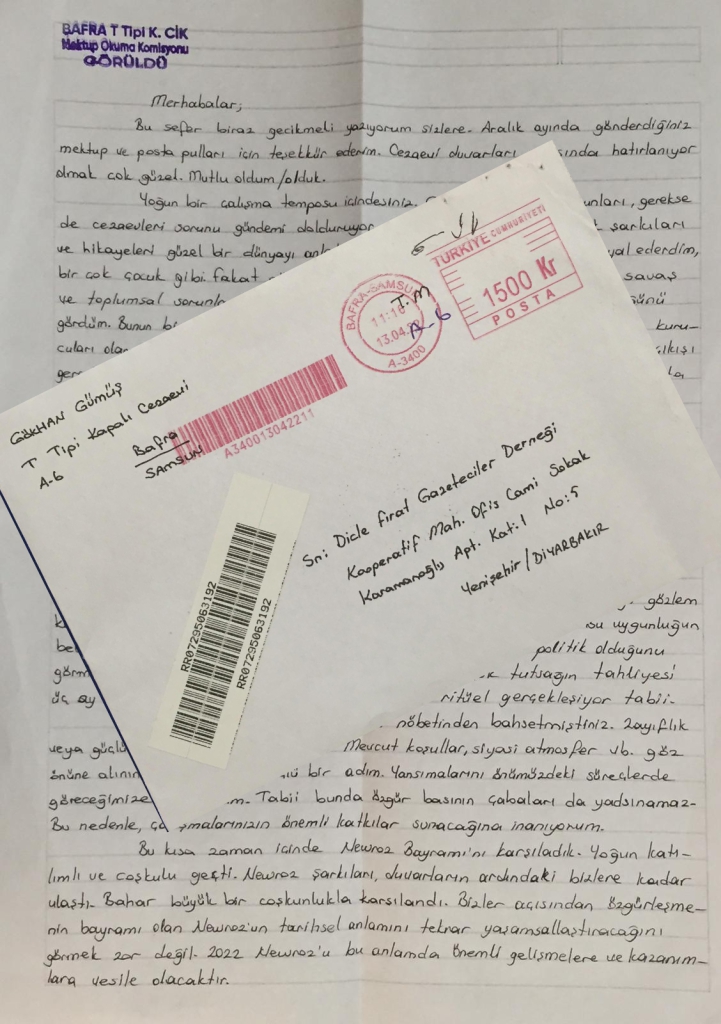 BAFRA T Tipi K. CİK
Mektup Okuma Komisyonu
GÖRÜLDÜ
Merhabalar;
Bu sefer biraz gecikmeli yazıyorum sizlere. Aralık ayında gönderdiğiniz
mektup ve posta pulları için teşekkür ederim. Cezaevi duvarları sında hatırlanıyor
olmak çok güzel. Mutlu oldum/olduk.
Yoğun bir çalışma temposu içindesiniz. unları, gerekse
de cezaevleri sorunu gündemi dolduruyor şarkıları
ve hikayeleri güzel bir dünyayı yal ederdim,
bir çok çocuk gibi. fakat savaş
ve toplumsal ünü
gördüm. Bunun kuru-
cuları ıkışı
TÜRKİYE CUMHURİYETİ
1500 Kr
POSTA
BAFRA-SAMSUN
13.04
A-3400
T.M
A-6
A340013042211
GÖKHAN GÜMÜŞ
T Tipi Kapalı Cezaevi
A-6 Bafra
SAMSUN
Sn: Dicle Fırat Gazeteciler Derneği
Kooperatif Mah. Ofis Cami Sokak
Karamanoğlu Apt. Kat:1 No:5
Yenişehir/DİYARBAKIR
RR07295063192
RR07295063192
gözlem
bu uygunluğun
politik olduğunu
tutsağın tahliyesi
üç ay ritüel gerçekleşiyor tabii.
nöbetinden bahsetmiştiniz. Zayıflık
veya güçlü Mevcut koşullar, siyasi atmosfer vb. göz
önüne alının bir adım. Yansımalarını önümüzdeki süreçlerde
göreceğimize m. Tabii bunda özgür basının çabaları da yadsınamaz.
Bu nedenle, ça şmalarınızın önemli katkılar sunacağına inanıyorum.
Bu kısa zaman içinde Newroz Bayramı'nı karşıladık. Yoğun katı-
lımlı ve coşkulu geçti. Newroz şarkıları, duvarların ardındaki bizlere kadar
ulaştı. Bahar büyük bir coşkunlukla karşılandı. Bizler açısından özgürleşme-
nin bayramı olan Newroz'un tarihsel anlamını tekrar yaşamsallaştıracağını
görmek zor değil. 2022 Newroz'u bu anlamda önemli gelişmelere ve kazanım-
lara vesile olacaktır.